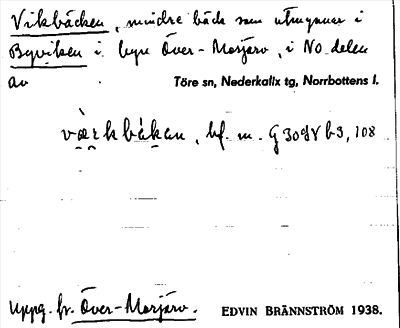 Vikbäcken, mindre bäck som utmynnar i
Byviken i byn Över-Morjärv, i NO delen
av Töre sn, Nederkalix tg, Norrbottens l.
bf. m. G 3098V b3, 108
Uppg. fr. Över-Morjärv. EDVIN BRÄNNSTRÖM 1938.